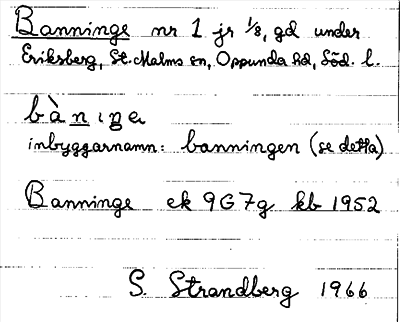 Banninge nr 1 jr 1/8, gd under
Eriksberg, St. Malms sn, Oppunda hd, Söd. l.
bàniŋe
inbyggarnamn: banningen (se detta)
Banninge ek 9G7g kb 1952
S. Strandberg 1966